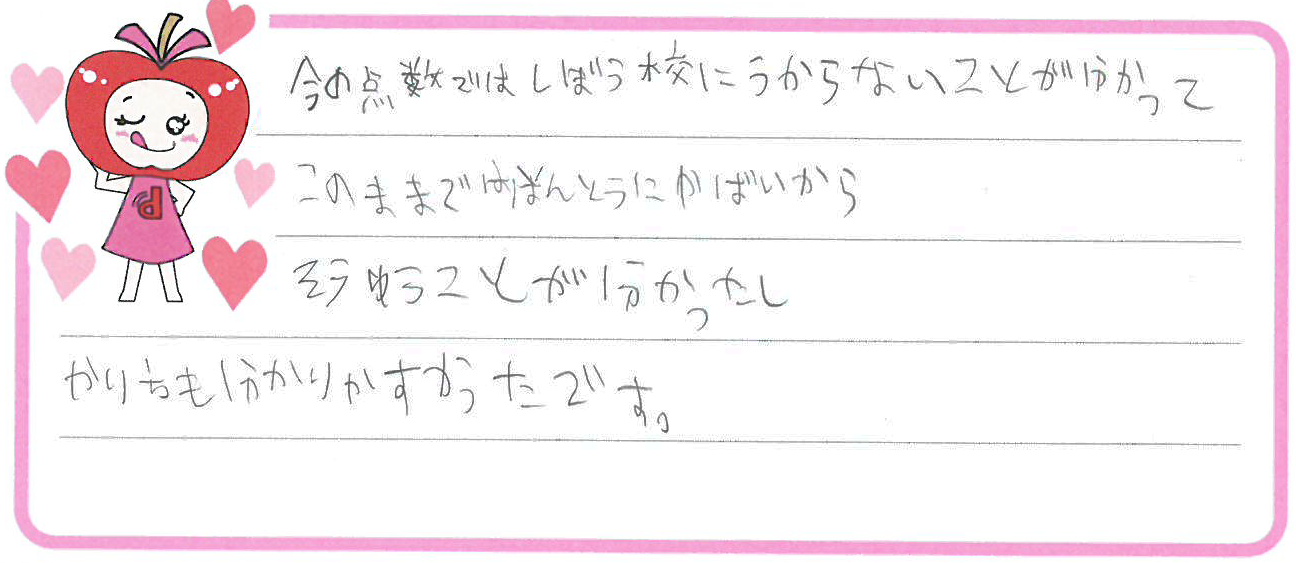 今の点数ではしぼう校にうからないことが分かって
このままではほんとうにやばいから
そうゆうことが分かったし
やり方も分かりやすかったです。